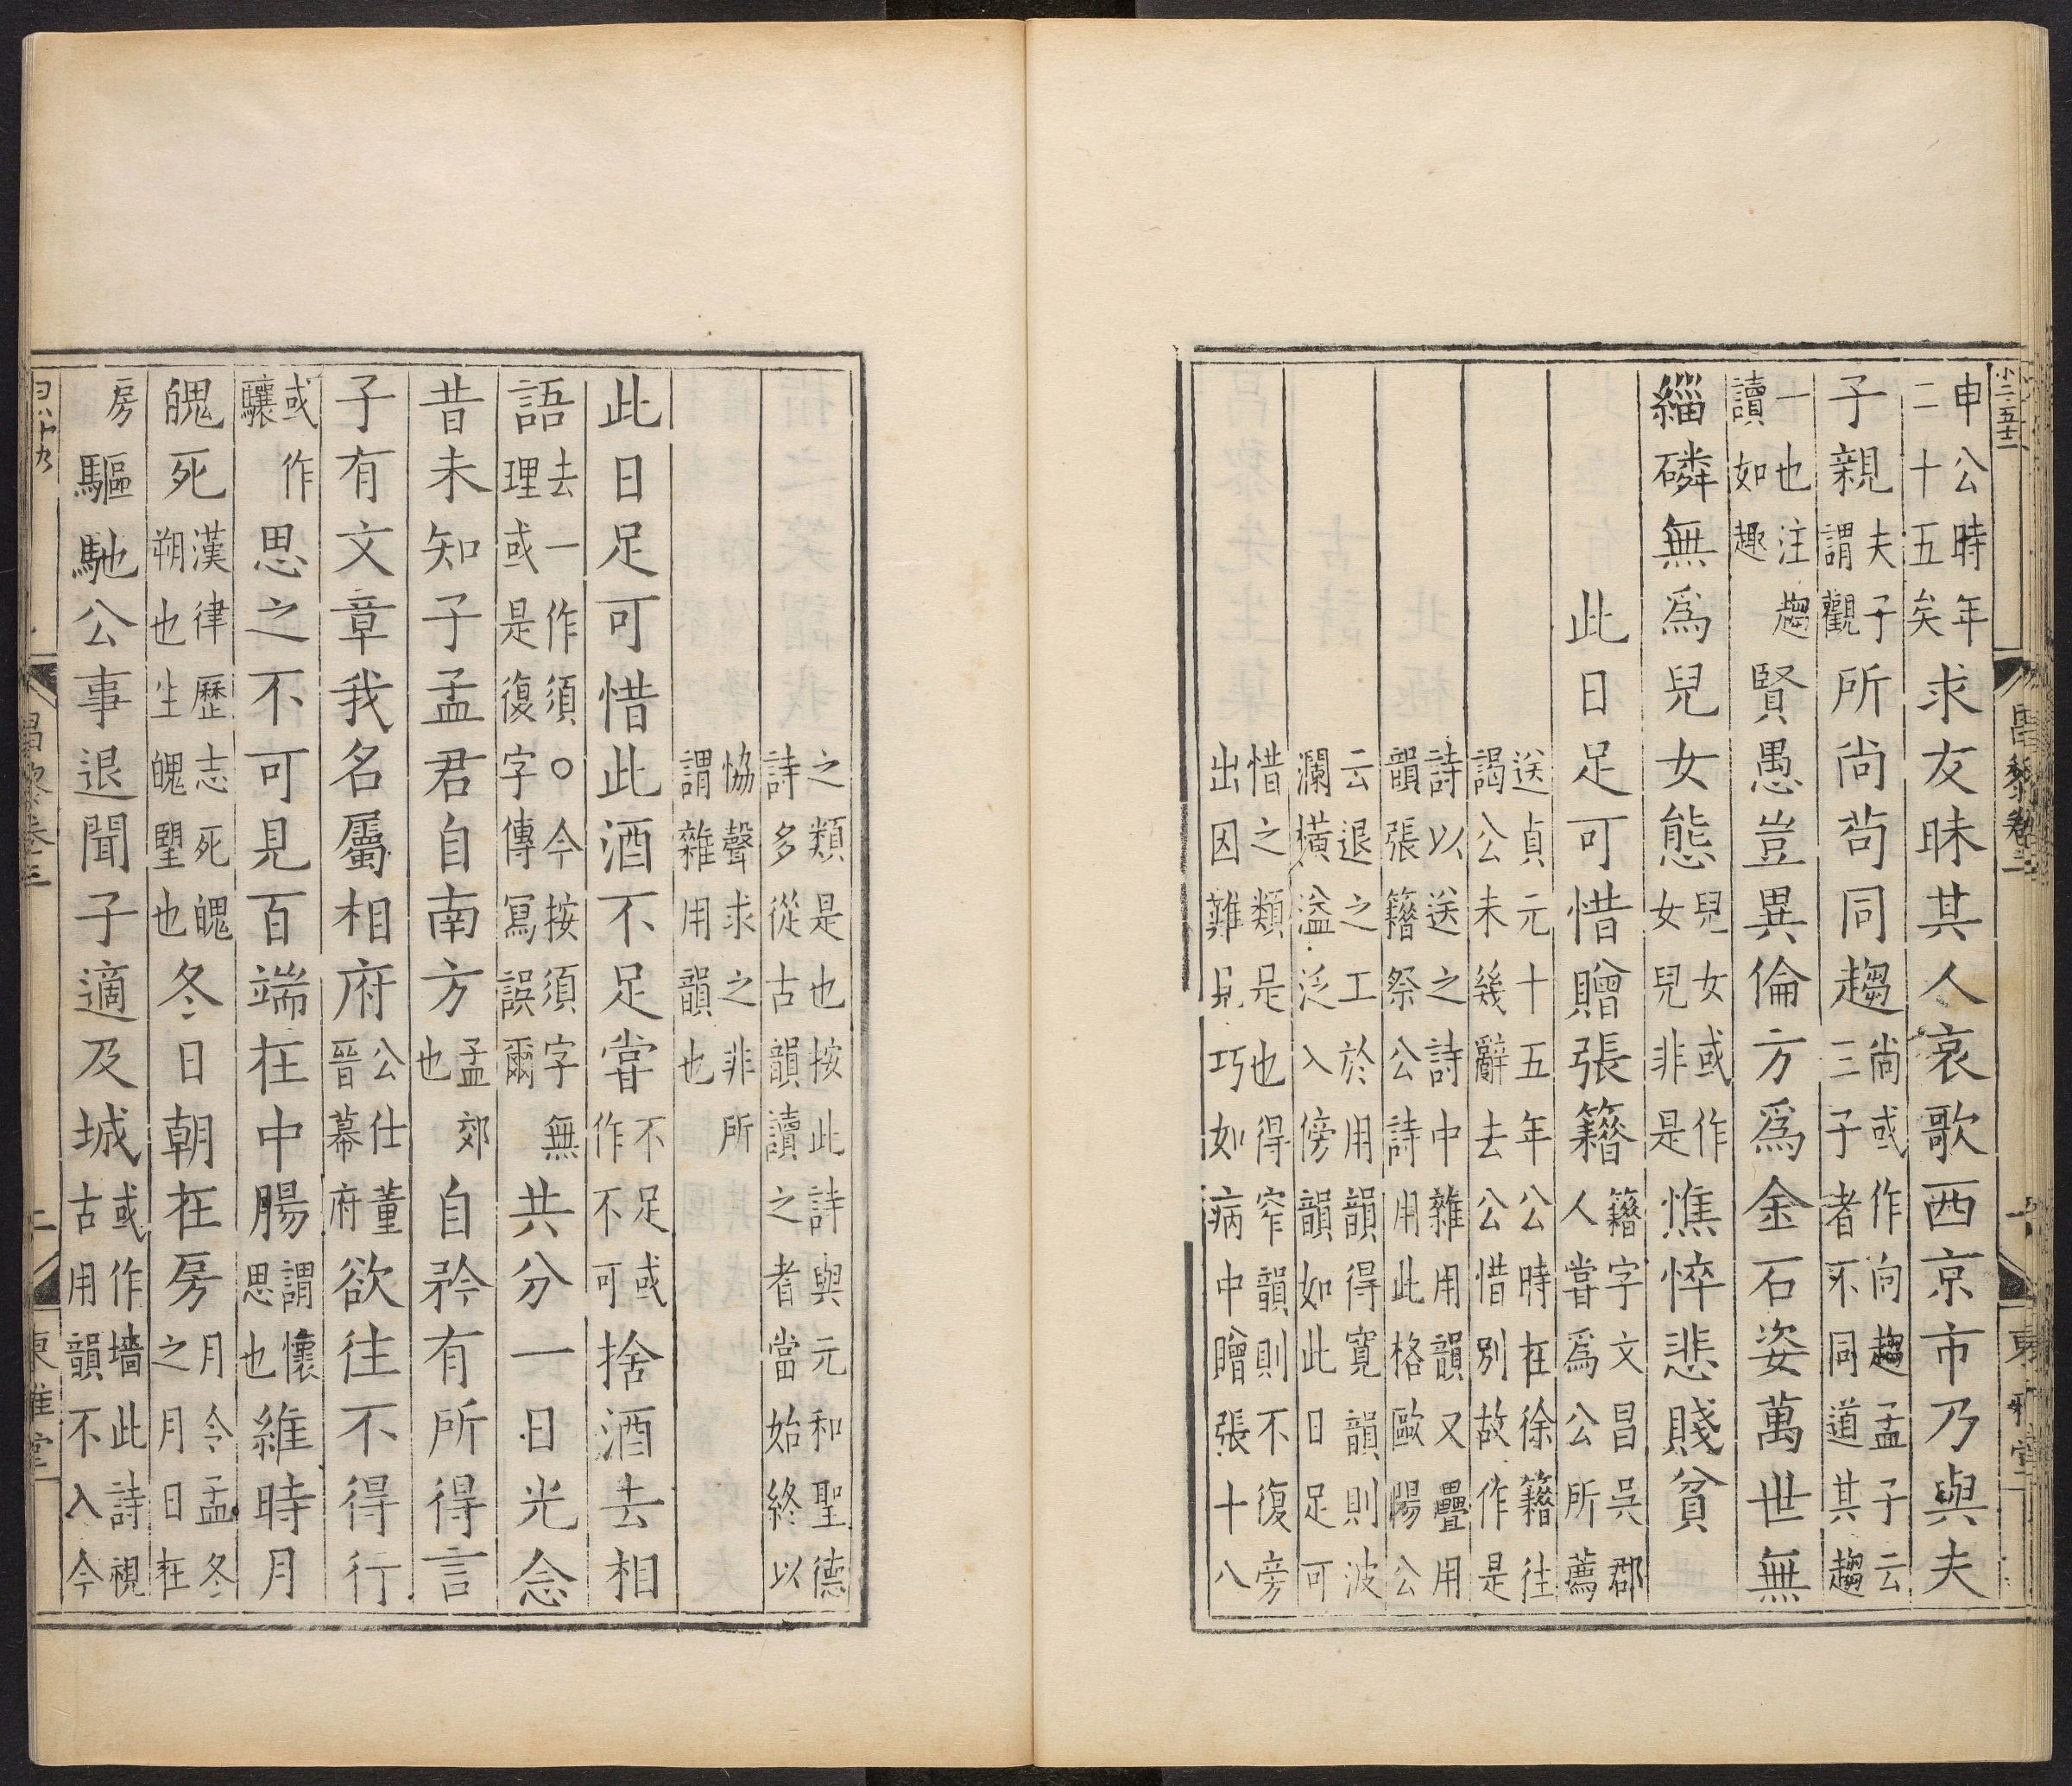 小二五十二
昌黎卷二
一
東雅堂
申公時年二十五矣求友昧其人哀歌西京市乃與夫
子親夫子謂觀所尚苟同趨尚或作向趨孟子云三子者不同道其趨
一也注趨讀如趣賢愚豈異倫方爲金石姿萬世無
緇磷無爲兒女態兒女或作女兒非是憔悴悲賤貧
此日足可惜贈張籍籍字文昌吳郡人嘗爲公所薦
送貞元十五年公時在徐籍往謁公未幾辭去公惜別故作是
詩以送之詩中雜用韻又疊用韻張籍祭公詩用此格歐陽公
云退之工於用韻得寬韻則波瀾橫溢泛入傍韻如此日足可
惜之類是也得窄韻則不復旁出因難見巧如病中贈張十八
之類是也按此詩與元和聖德詩多從古韻讀之者當始終以
協聲求之非所謂雜用韻也
此日足可惜此酒不足嘗不足或作不可捨酒去相
語去一作須○今按須字無理或是復字傳寫誤爾共分一日光念
昔未知子孟君自南方孟郊也自矜有所得言
子有文章我名屬相府公仕董晉幕府欲往不得行
或作驤思之不可見百端在中腸謂懷思也維時月
魄死漢律歷志死魄朔也生魄朢也冬日朝在房月令孟冬之月日在
房驅馳公事退聞子適及城或作墻此詩視古用韻不入今
昌黎卷二
二
東雅堂